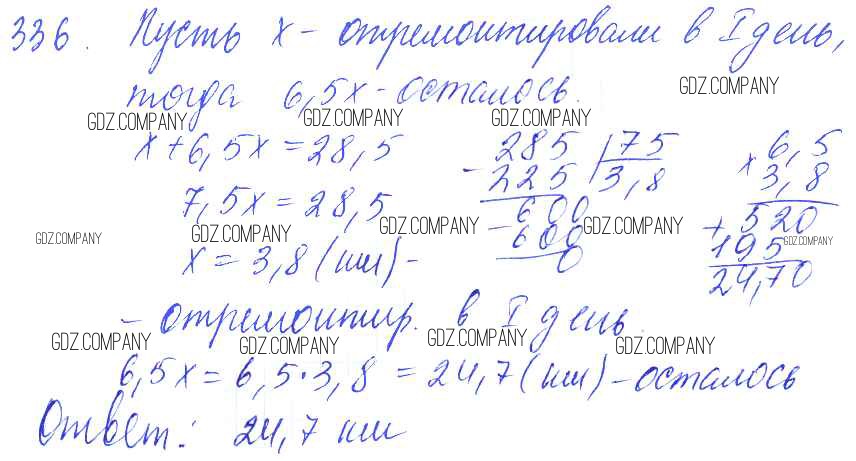 336. Пусть x - отремонтировали в I день,
тогда 6,5x - осталось.
GDZ.COMPANY
GDZ.COMPANY GDZ.COMPANY GDZ.COMPANY
x + 6,5x = 28,5
7,5x = 28,5
x = 3,8 (км) -
285 | 75
- 225 | 3,8
600
- 600
0
x 6,5
3,8
+ 520
195
24,70
GDZ.COMPANY GDZ.COMPANY GDZ.COMPANY GDZ.COMPANY GDZ.COMPANY
- отремонтир. в I день.
GDZ.COMPANY GDZ.COMPANY GDZ.COMPANY GDZ.COMPANY
6,5x = 6,5·3,8 = 24,7 (км) - осталось
Ответ: 24,7 км